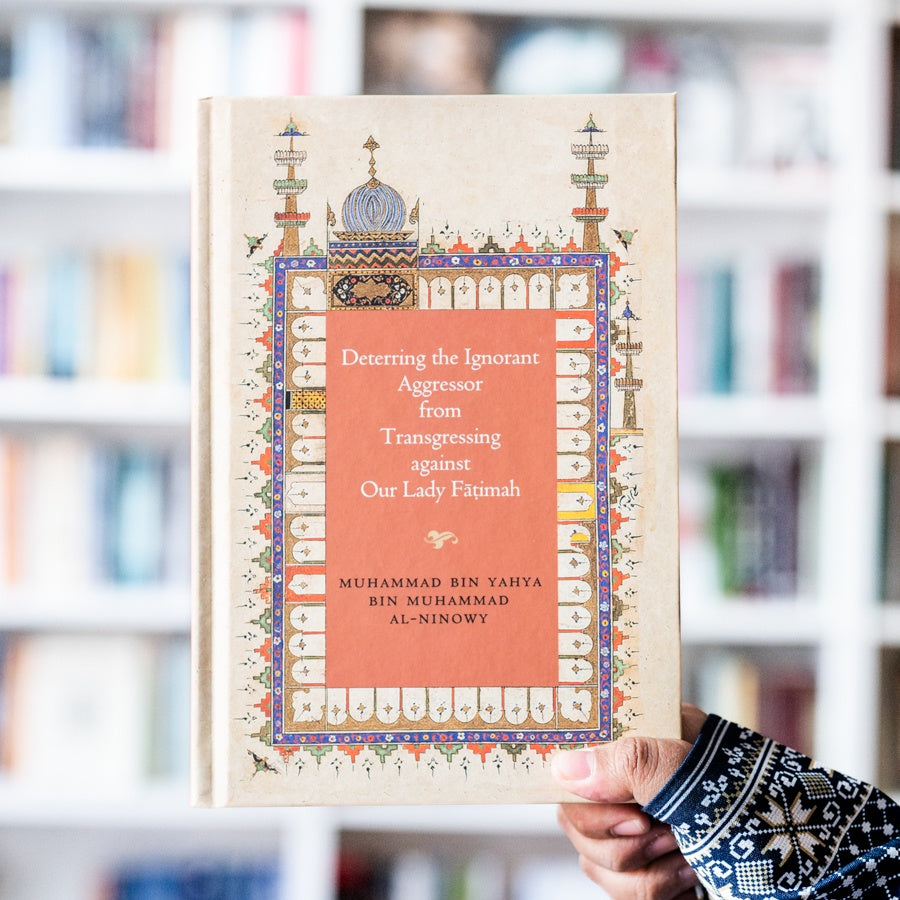 Deterring the Ignorant
Aggressor
from
Transgressing
against
Our Lady Fāṭimah
MUHAMMAD BIN YAHYA
BIN MUHAMMAD
AL-NINOWY